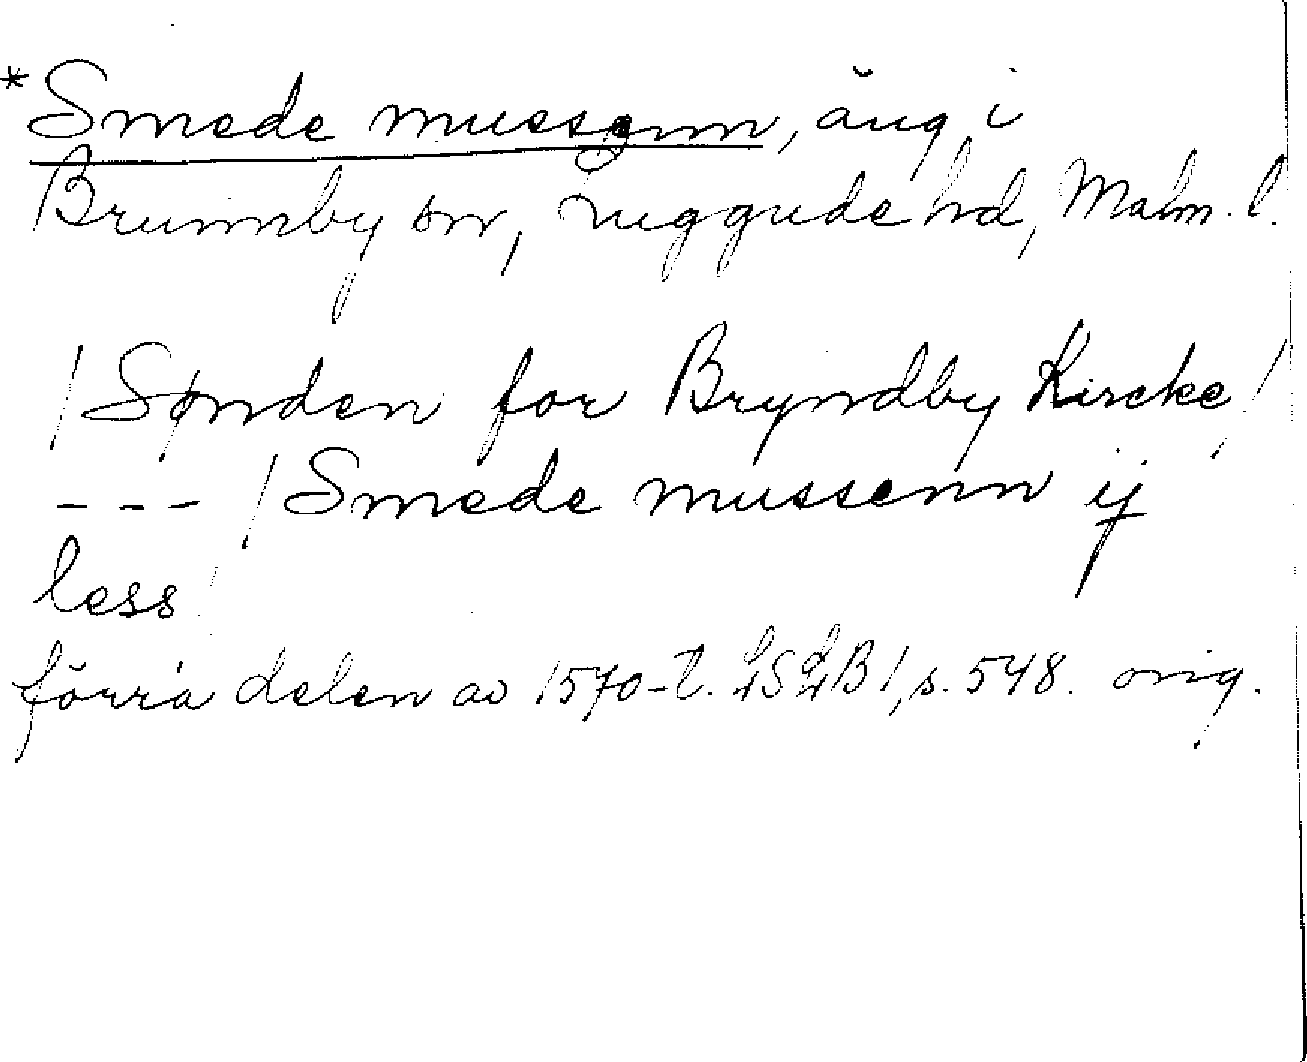 *Smede mussenn, äng i
Brunnby sn, Luggude hd, Malm. l.
/Sønden for Bryndby Kircke/
--- /Smede mussenn ij
less/
förra delen av 1570-t. LSLB 1, s. 548. orig.